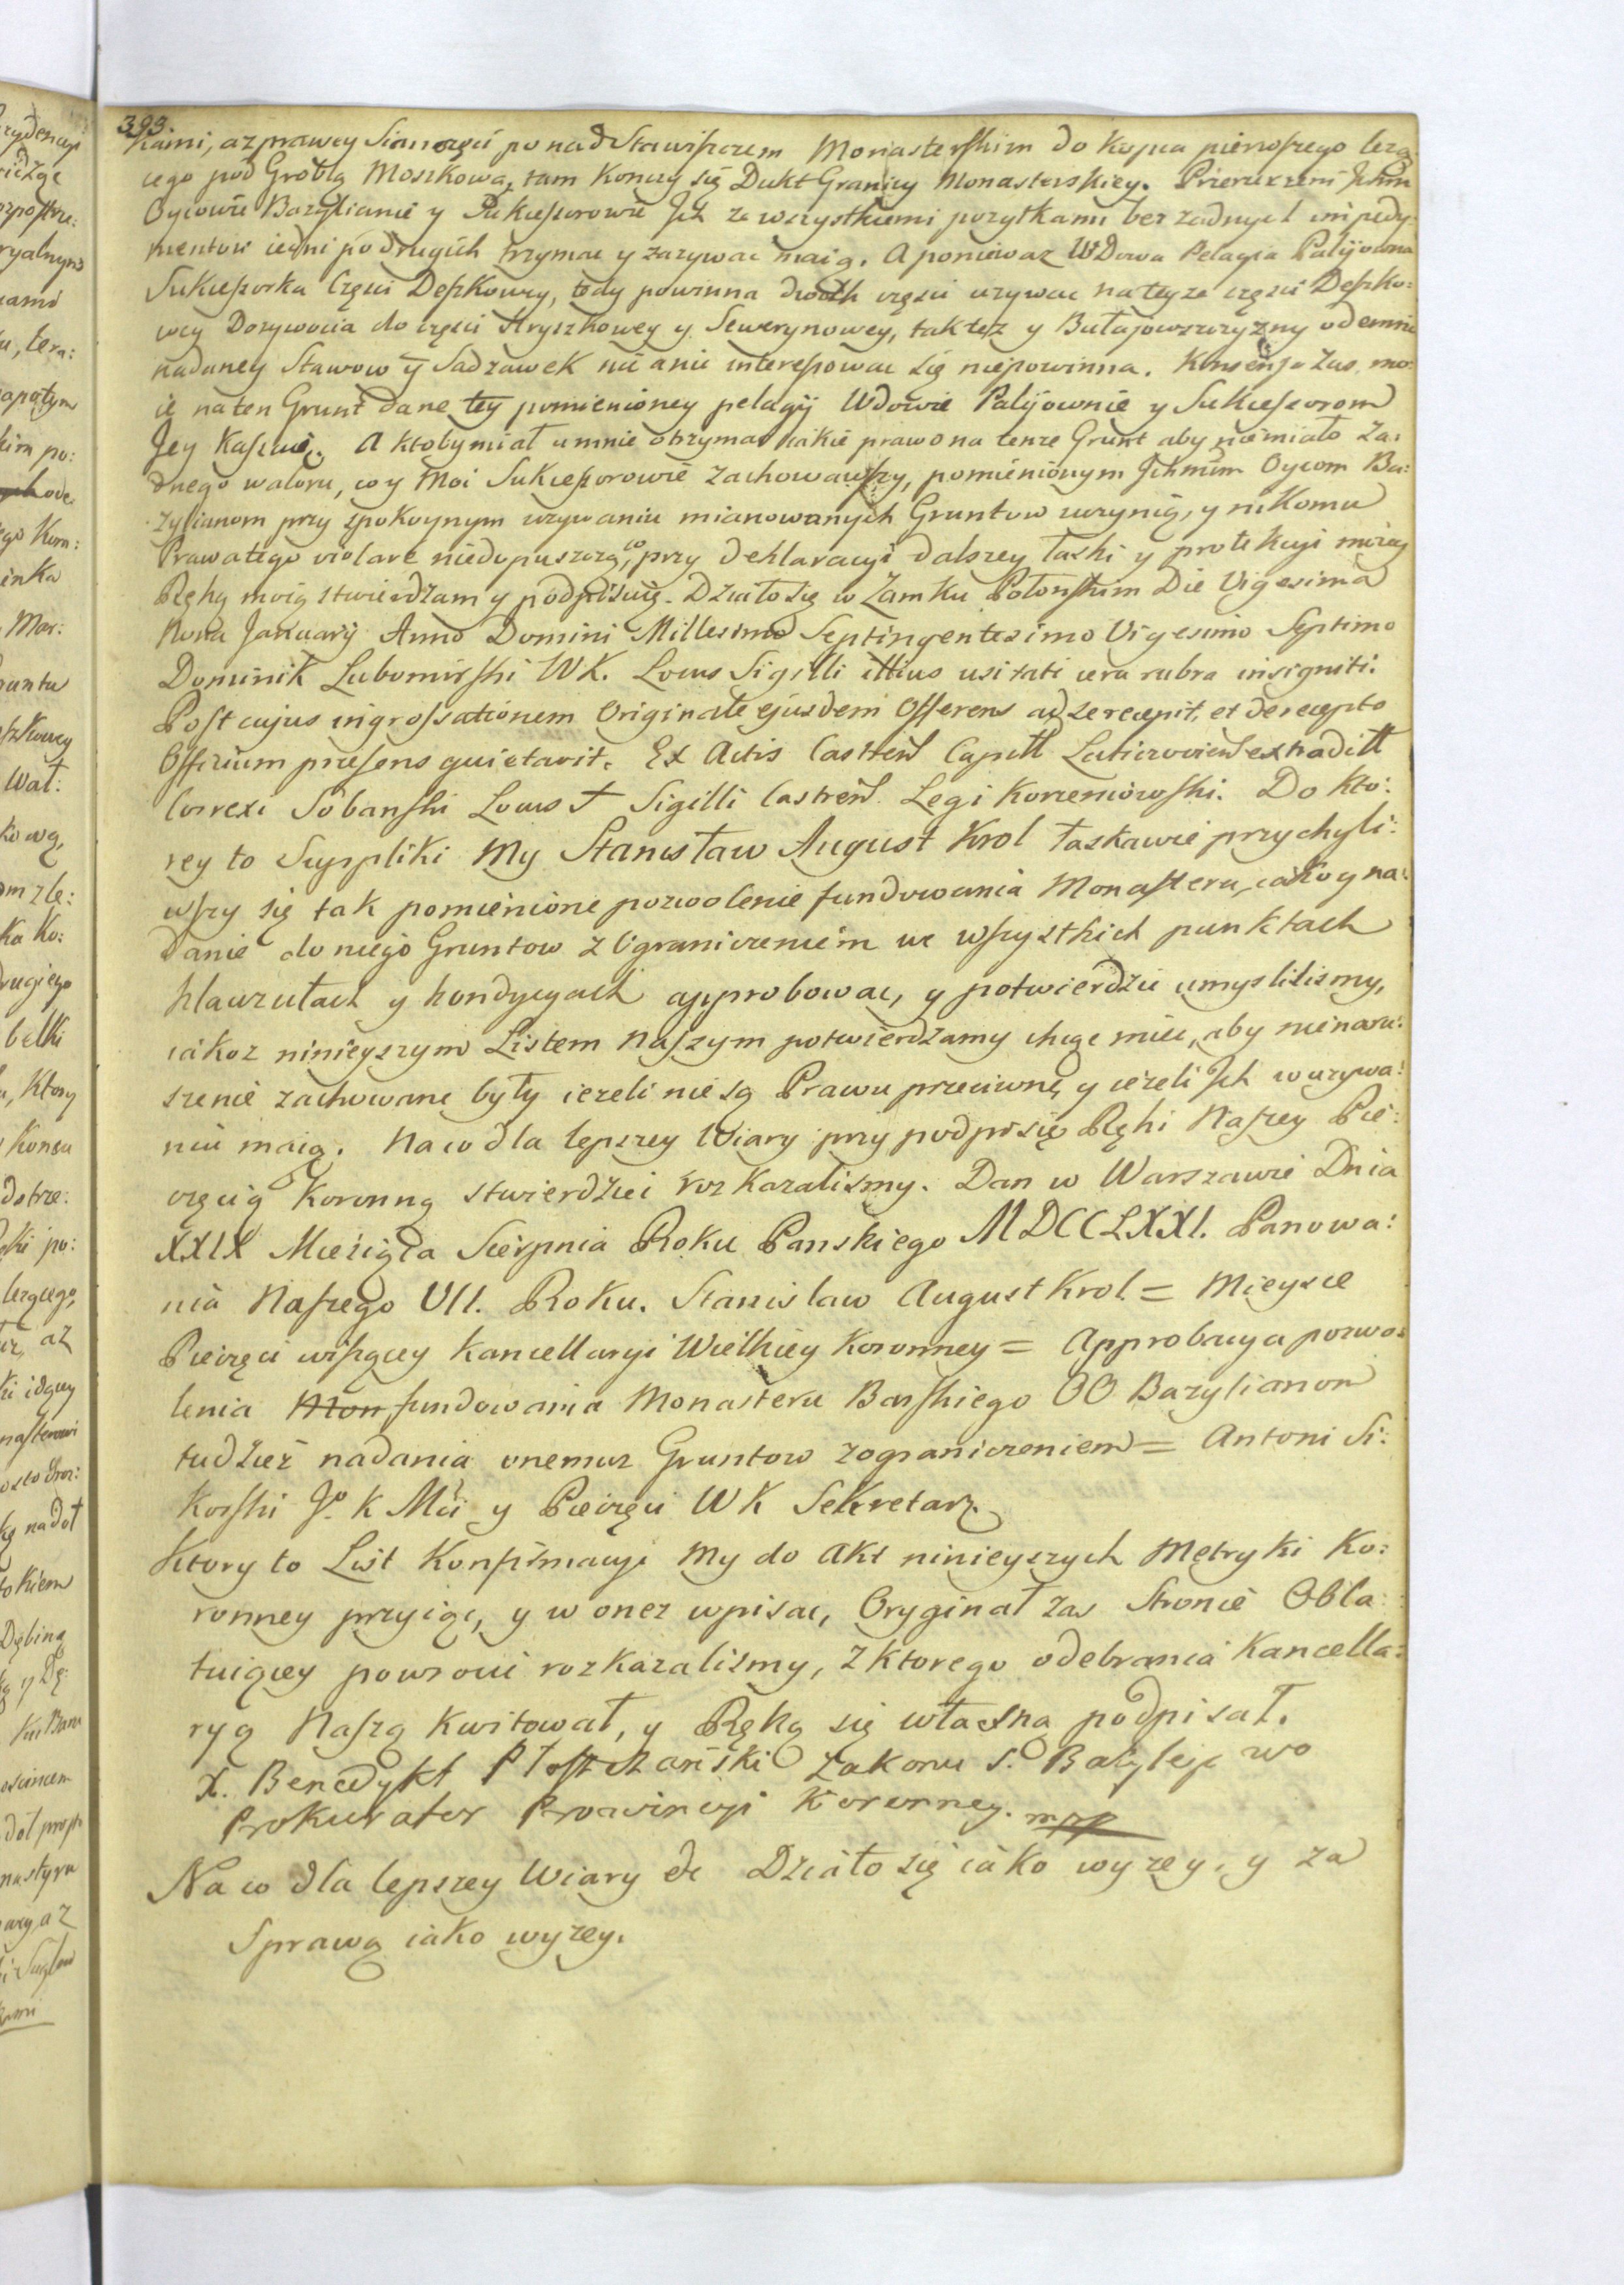 393.
kami, a z prawey Sianozęci ponad Stawiszczem Monasterskim do Kopca pierwszego lezą:
cego pod Groblą Moszkową, tam Konczy się Dukt Granicy Monasterskiey. Przerzeczeni Ichm
Oycowie Bazylianie y Sukcessorowie Ich ze wszystkiemi pozytkami bez zadnych impedy:
mentow iedni po drugich trzymac y zazywac maią. A poniewaz WDowa Pelagia Palijowna
Sukcessorka Częsci Deszkowey, tedy powinna dwoch części uzywac na teyze części Deszko:
wey Dozywocia do części Hryszkowey y Sewerynowey, taktęz y Bułajowszczyzny odemnie
nadaney Stawow y Sadzawek nic a nic interesowac się niepowinna. Konsensa Zas mo:
ie na ten Grunt dane tey pomienioney pelagij Wdowie Palijownie y Sukcessorom
Jey Kassuię. A ktoby miał u mnie otrzymac iakie prawo na tenze Grunt aby niemiało Za:
dnego waloru, co y Moi Sukcessorowie zachowawszy, pomienionym Ichmćm Oycom Ba:
zylianom przy spokoynym uzywaniu mianowanych Gruntow uczynią, y nikomu
Prawa tego violare niedopuszczą, co przy deklaracyi dalszey łaski y protekcyi moiey
Ręką moią stwierdzam y podpisuię. Działo się w Zamku Połonskim Die Vigesima
Nona Januarij Anno Domini Millesimo Septingentesimo Vigesimo Septimo
Dominik Lubomirski WK. Locus Sigilli illius usitati cera rubra insigniti.
Post cujus ingrossationem Originale ejusdem Offerens ad se recepit, et de recepto
Officium presens quietavit. Ex Actis Castreñ Capitł Laticzovieñ extraditł
Correxi Sobanski Locus † Sigilli Castreñ. Legi Korzeniowski. Do kto:
rey to Suppliki My Stanisław August Krol łaskawie przychyli:
wszy się tak pomienione pozwolenie fundowania Monasteru, iako y na:
danie do niego Gruntow z Ograniczeniem we wszystkich punktach
klauzułach y kondycyach approbowac, y potwierdzic umyslilismy,
iakoz ninieyszym Listem Naszym potwierdzamy chcąc miec, aby nienaru:
szenie zachowane były iezeli nie są Prawu przeciwne, y iezeli Ich w uzywa:
niu maią. Na co dla lepszey Wiary przy podpisie Ręki Naszey Pie:
częcią Koronną stwierdzic rozkazalismy. Dan w Warszawie Dnia
XXIX Miesiąca Sierpnia Roku Panskiego MDCCLXXI. Panowa:
nia Naszego VII. Roku. Stanislaw August Krol = Mieysce
Pieczęci wiszącey Kancellaryi Wielkiey Koronney = Approbacya pozwo:
lenia Mon fundowania Monasteru Barskiego OO Bazylianom
tudziez nadania onemuz Gruntow z ograniczeniem = Antoni Si:
korski Jo K Mci y Pieczęci WK Sekretarz.
Ktory to List Konfirmacyi My do Akt ninieyszych Metryki Ko:
ronney przyiąc, y w onez wpisac, Oryginał zas Stronie Obla:
tuiącey powrocic rozkazalismy, z ktorego odebrania Kancella:
ryą Naszą kwitował, y Ręką się własną podpisał.
X. Benedykt Zakonu S. Bazylego wo
Prokurator Prowincyi Koronney. mpp
Na co dla lepszey Wiary &c Działo się iako wyzey, y za
Sprawą iako wyzey.